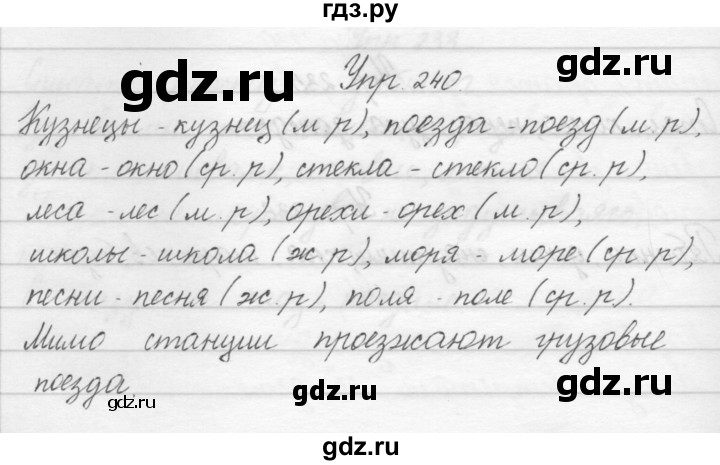 гдз.ру
gdz.ru
Упр. 240.
Кузнецы - кузнец (м.р), поезда - поезд (м.р),
окна - окно (ср.р), стекла - стекло (ср.р),
леса - лес (м.р), орехи - орех (м.р),
школы - школа (ж.р), моря - море (ср.р),
песни - песня (ж.р), поля - поле (ср.р).
Мимо станции проезжают грузовые
поезда.
gdz.ru
gdz.ru
gdz.ru
gdz.ru